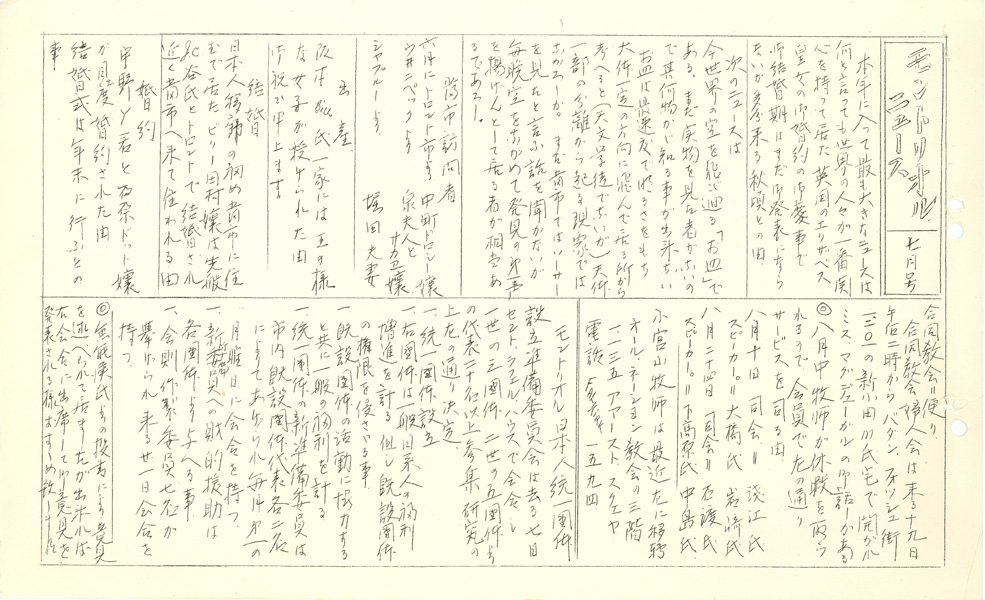 モントリオール
ニュース
七月号
本年に入って最も大きなニュースは
何と言っても世界の人々が一番関
心を持って居た英国のエリザベス
皇女の御婚約の御慶事で
御結婚期はまだ御発表になら
ないが多分来る秋頃との由
次のニュースは
今世界の空を飛び廻る「お皿」で
ある、まだ実物を見た者がないの
で其何物か知る事が出来ない
お皿は最速度で明るさをもち
大体一定の方向に飛んで居る所から
考へると(天文学徒でないが)天体
一部の分離から起る現象では
なかろーか。まだ当市ではいーサー
を見たと言ふ話を聞かないが
毎晩空をながめて発見の第一声
を揚げんとして居る者が相当あ
るであろー。
当市訪問者
六月にトロント市より 中町ドロシー嬢
ウイニペックより 泉夫人と
サカヱ嬢
シャブルーより 堀田夫妻
出産
阪本 氏一家には玉の様
な女子が授けられた由
御祝び申上ます
結婚
日本人傷病の為め当市に住
むで居たビリー田村嬢は先般
糸谷氏とトロントで結婚され
近く当市へ来て住われる由
婚約
牟野ノ君と石原ドット嬢
が目出度婚約された由
結婚式は年末に行ふとの
事
合同教会便り
合同教会婦人会は来る十九日
午后二時からバダン、フォッシュ街
一三〇一の新小田 氏宅で開かれ
ミス、マクデューガルの御話しがある
◎八月中牧師が休暇を取ら
れるので、会員で左の通り
サービスを司る由
八月十日 司会〃 浅江氏
スピカー〃 大橋氏 岩崎氏
八月二十四日 司会〃 石渡氏
スピーカー〃 高原氏 中島氏
小宮山牧師は最近左に移転
オールネーション教会の三階
一二三五 アマースト スクエヤ
電話
モントリオル日本人統一団体
設立準備委員会は去る七日
セントラヱルハウスで会合し
一世の三団体、二世の五団体より
の代表二十名以上参集研究の
上左の通り決定
一、統一団体設立
一、右団体は一般日系人の福利
増進を計る 但し既設団体
の権限を侵さざる事
一、既設団体の活動に協力する
と共に一般の福利を計る
一、統一団体の新準備委員は
市内既設団体代表各二名
によりてあたられ毎月第一の
月曜日に会合を持つ
一、新委員への財的援助は
各団体より与へる事
一、会則作製委員七名が
挙げられ来る廿一日会合を
持つ
◎無能庵氏の投書により意見
を述べられて居ましたが出来れば
右会合に出席して御意見を
発表される様おすすめ致します